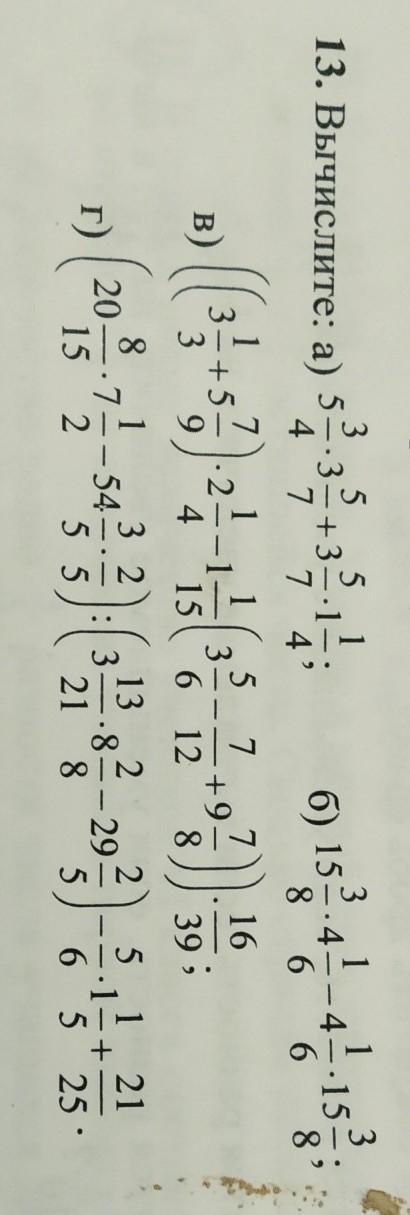 13. Вычислите: а) 5 3/4 · 3 5/7 + 3 5/7 · 1 1/4; б) 15 3/8 · 4 1/6 − 4 1/6 · 15 3/8;
в) ((3 1/3 + 5 7/9) · 2 1/4 − 1 1/15 (3 5/6 − 7/12 + 9 7/8)) · 16/39;
г) (20 8/15 · 7 1/2 − 54 3/5 · 2/5) : (3 13/21 · 8 2/8 − 29 2/5) − 5/6 · 1 1/5 + 21/25.